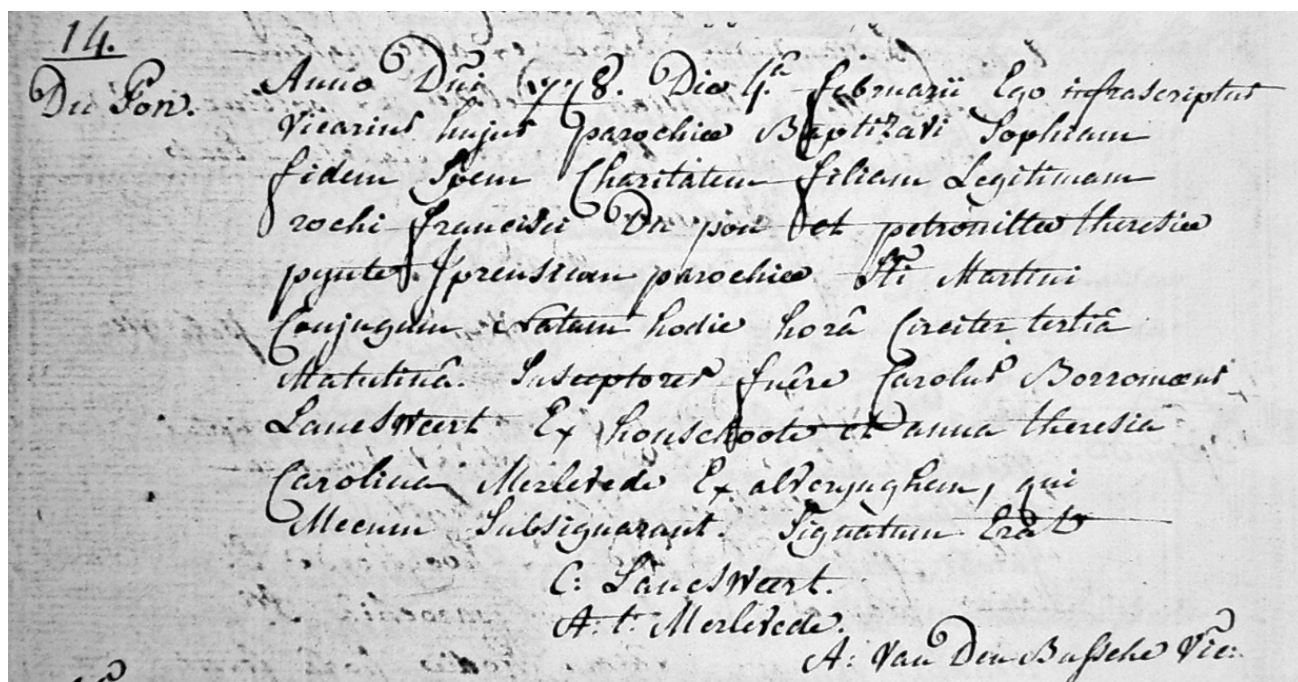 14.
Du Pon.
Anno Dñi 1778. Die 4.ª februarii Ego infrascriptus
Vicarius hujus parochiæ Baptizavi Sophiam
fidem Spem Charitatem filiam Legitimam
rochi francisci Du pon et petronillæ theresiæ
pynte Iprensium parochiæ Sti Martini
Conjugum Natam hodie horâ Circiter tertiâ
Matutinâ. Susceptores fuêre Carolus Borromæus
LanesWeert Ex honschoote et anna theresia
Carolina Merlevede Ex alverynghem, qui
Mecum Subsignarant. Signatum Erat
C: LanesWeert.
A: t: Merlevede.
A: Van Den Bussche Vic: